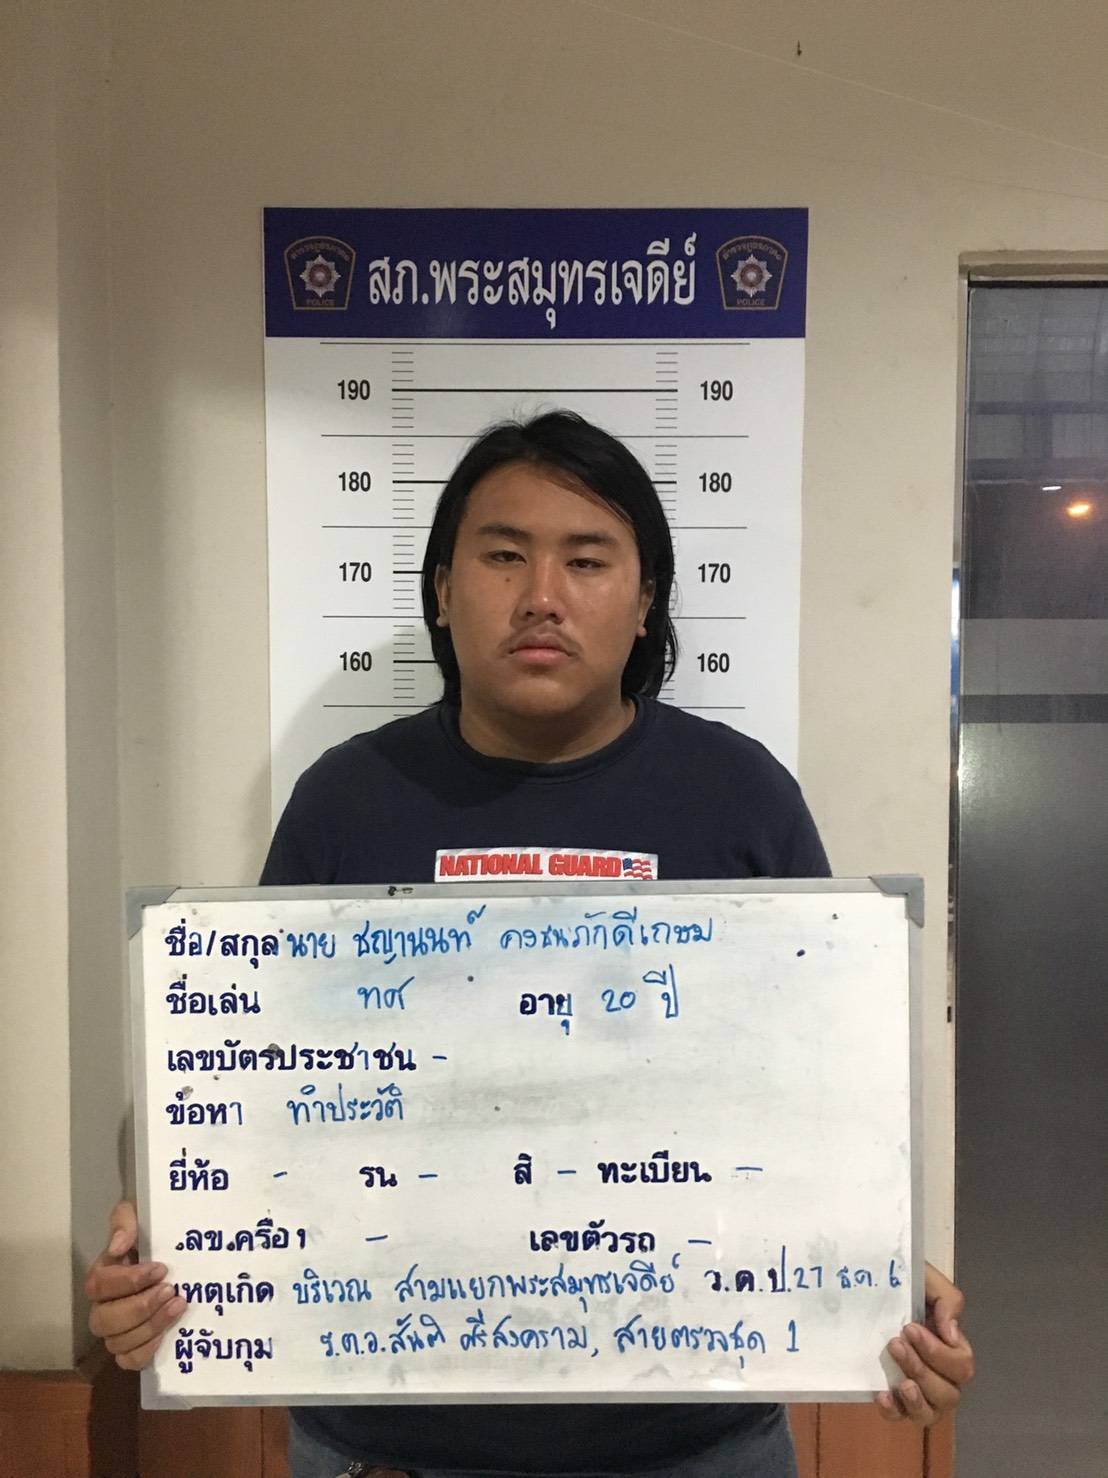 สภ.พระสมุทรเจดีย์
POLICE POLICE
190 190
180 180
170 170
160 160
NATIONAL GUARD
ชื่อ/สกุล นาย ชญานนท์ คงธนภักดีเกษม
ชื่อเล่น ทศ อายุ 20 ปี
เลขบัตรประชาชน -
ข้อหา ทำประวัติ
ยี่ห้อ - รน - สี - ทะเบียน -
ลข.ครือง - เลขตัวรถ -
หตุเกิด บริเวณ สามแยกพระสมุทรเจดีย์ ว.ด.ป. 27 ธ.ค. 6
ผู้จับกุม ร.ต.อ.สันติ ศรีสงคราม, สายตรวจชุด 1